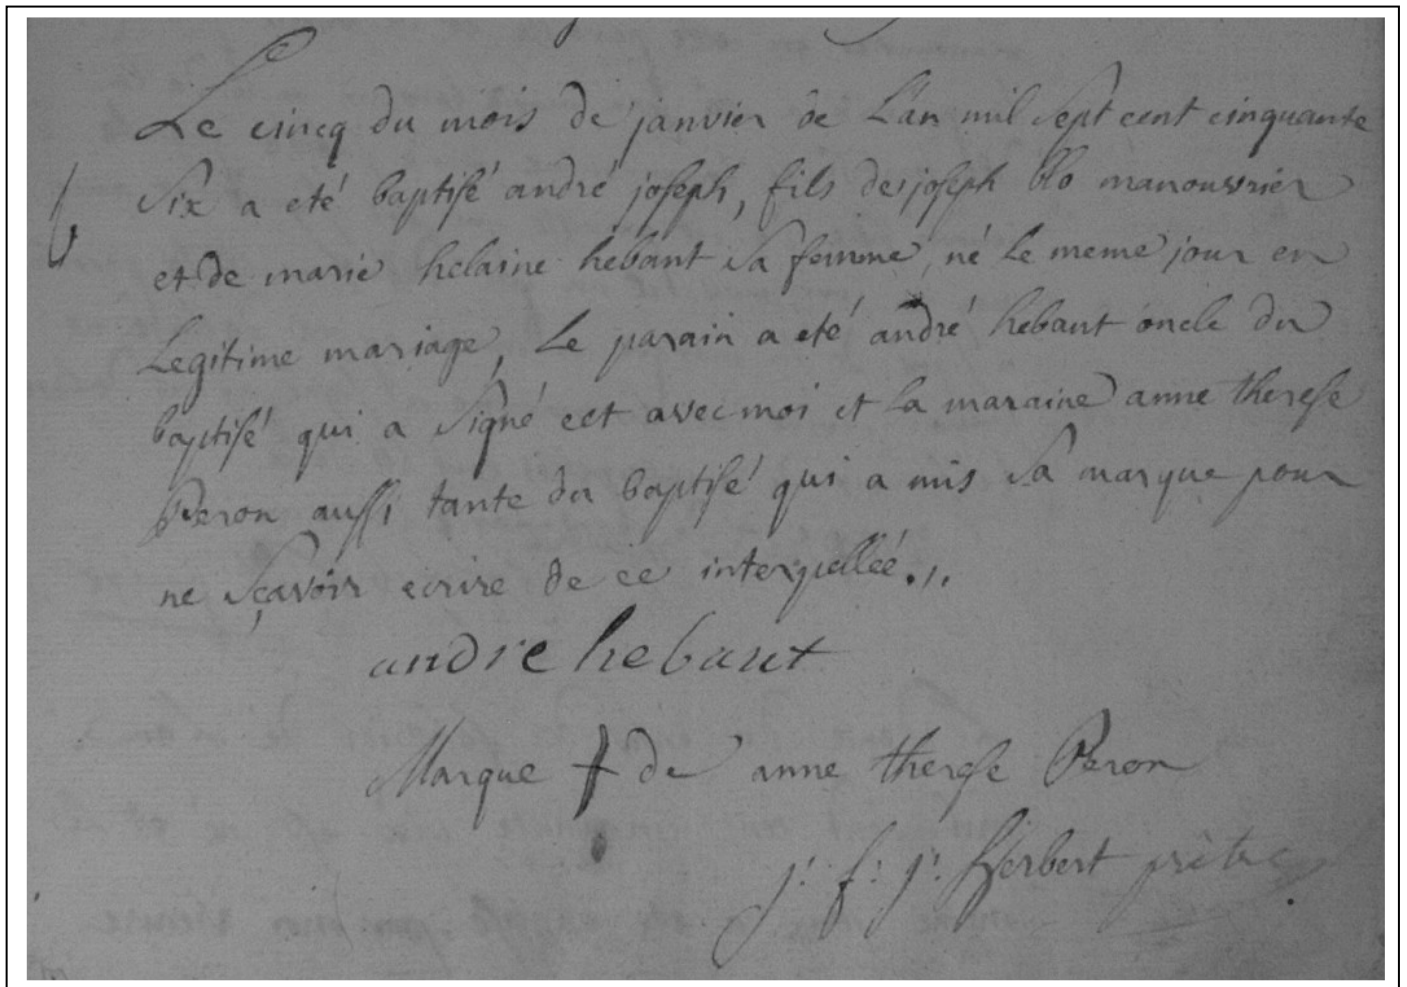 Le cincq du mois de janvier de L'an mil sept cent cinquante
six a eté baptisé andré joseph, fils de joseph blo manouvrier
et de marie helaine hebant sa femme, né le meme jour en
Legitime mariage, Le parain a eté andré hebant oncle du
baptisé qui a signé cet avec moi et la maraine anne therese
Peron aussi tante du baptisé qui a mis sa marque pour
ne sçavoir ecrire de ce interpellée.,,
andre hebant
Marque † de anne therese Peron
j: f: j: herbert prêtre